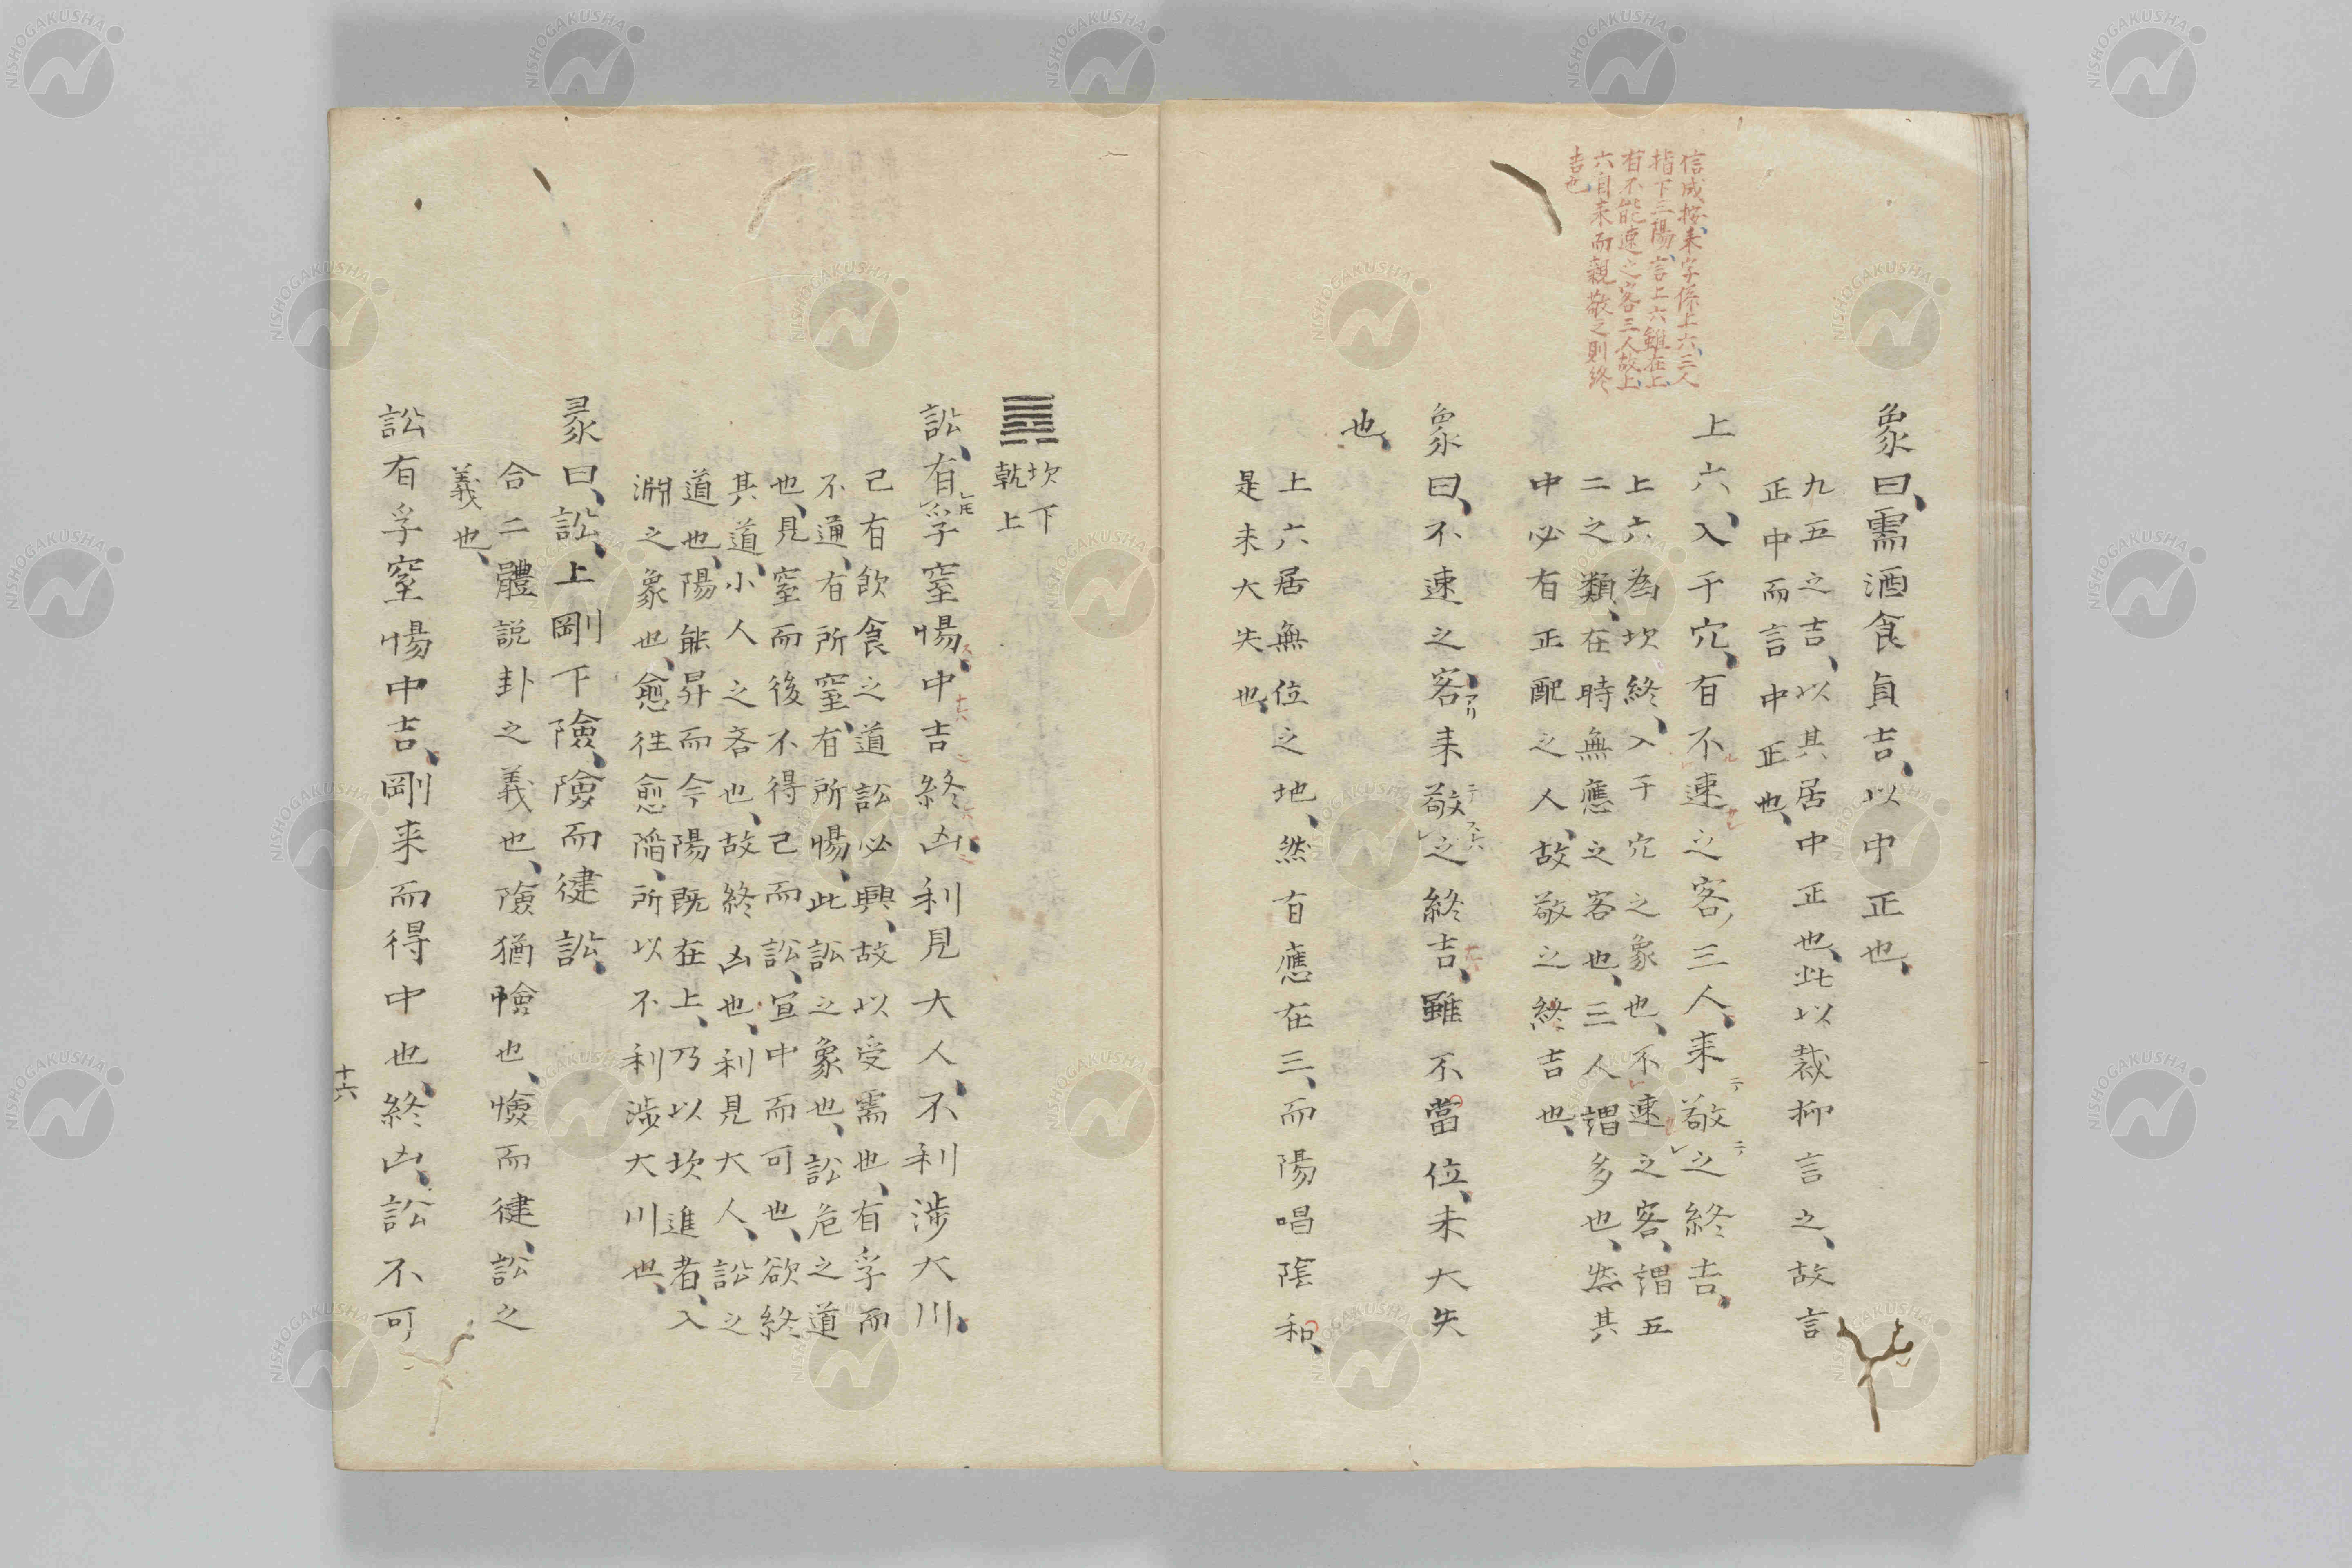 信成按、来字係上六、三人
指下三陽、言上六雖在上、
有不能速之客三人、故上
六自来而親敬之則終
吉也
象曰、需酒食貞吉、以中正也、
九五之吉、以其居中正也、此以裁抑言之、故言
正中而言中正也、
上六、入于穴、有不速之客、三人来敬之終吉、
上六為坎終、入于穴之象也、不速之客、謂五
二之類、在時無應之客也、三人謂多也、然其
中必有正配之人、故敬之終吉也、
象曰、不速之客来敬之終吉、雖不當位、未大失
也、
上六居無位之地、然有應在三、而陽唱陰和、
是未大失也、
坎下
乹上
訟、有孚窒惕、中吉終凶、利見大人、不利渉大川、
己有飲食之道訟必興、故以受需也、有孚而
不通、有所窒、有所惕、此訟之象也、訟危之道
也、見窒而後不得已而訟、宣中而可也、欲終
其道、小人之吝也、故終凶也、利見大人、訟之
道也、陽能昇而今陽既在上、乃以坎進者、入
淵之象也、愈往愈陥、所以不利渉大川也、
彖曰、訟、上剛下險、險而健訟、
合二體説卦之義也、險猶憸也、憸而健、訟之
義也、
訟有孚窒惕中吉、剛来而得中也、終凶、訟不可
十六
NISHOGAKUSHA